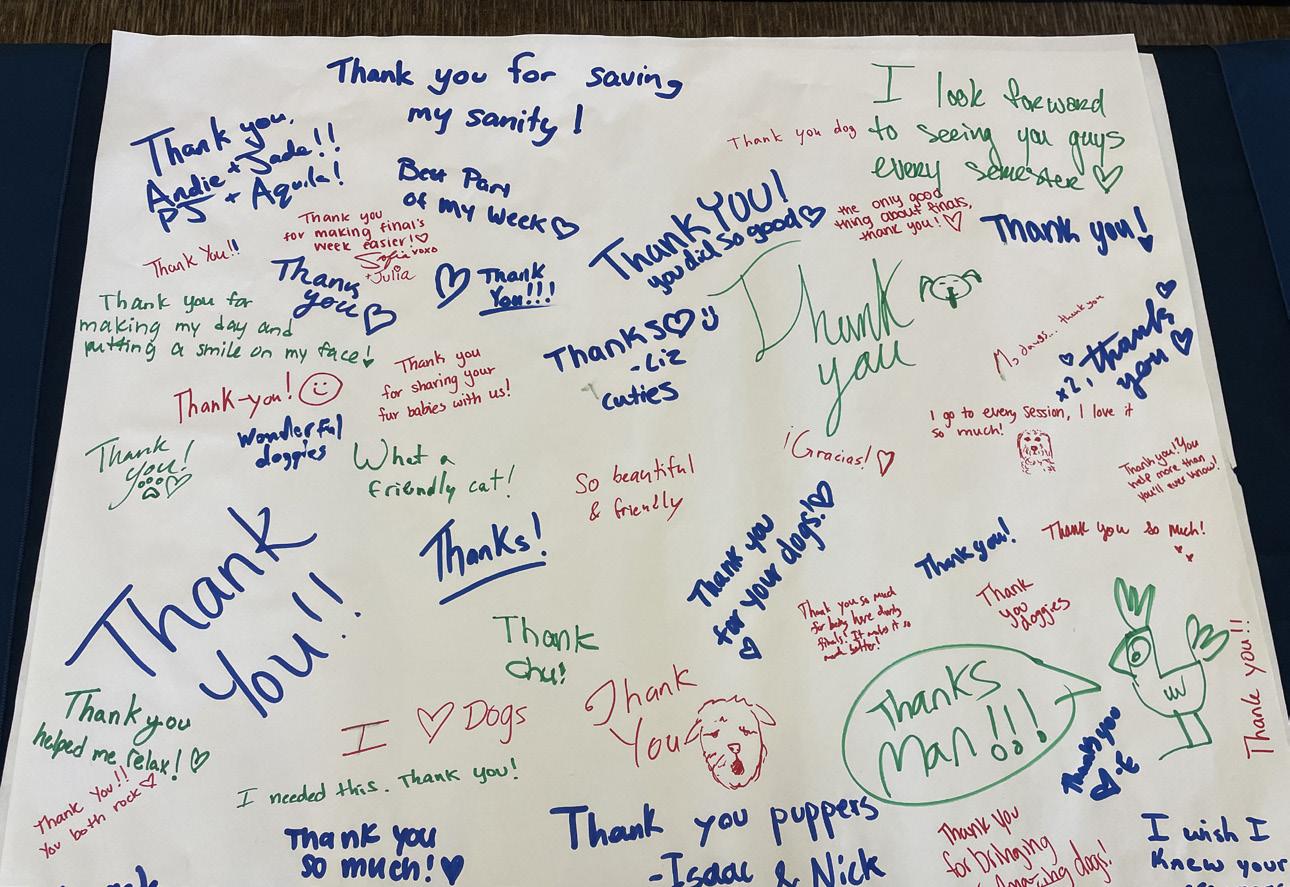 Thank you for saving
my sanity!
I look forward
to seeing you guys
every semester
Thank you,
Andie + Jada!!
PJ + Aquila!
Thank you dog
Best Part
of my week
Thank YOU!
you did so good
the only good
thing about finals,
thank you!
Thank you!
Thank you
for making final's
week easier!
Sofia xoxo
+Julia
Thank You!!
Thank
you
Thank
You!!!
Thank you for
making my day and
putting a smile on my face!
Thanks
-Liz
cuties
Thank
you
thank you
x2, thank
you
Thank you
for sharing your
fur babies with us!
Thank-you!
Wonderful
doggies
I go to every session, I love it
so much!
Thank
you!
What a
friendly cat!
So beautiful
& friendly
¡Gracias!
Thank you! You
help more than
you'll ever know!
Thank
You!!
Thanks!
Thank you
for your dogs!
Thank you!
Thank you so much!
Thank you so much
for being here during
finals! It makes it so
much better!
Thank
you
doggies
Thank
chu!
Thank you
helped me relax!
I Dogs
Thank
You
Thanks
Man!!!
Thank you
-E
Thank you!!
Thank You!!
You both rock
I needed this. Thank you!
Thank you
so much!
Thank you puppers
-Isaac & Nick
Thank you
for bringing
amazing dogs!
I wish I
knew your